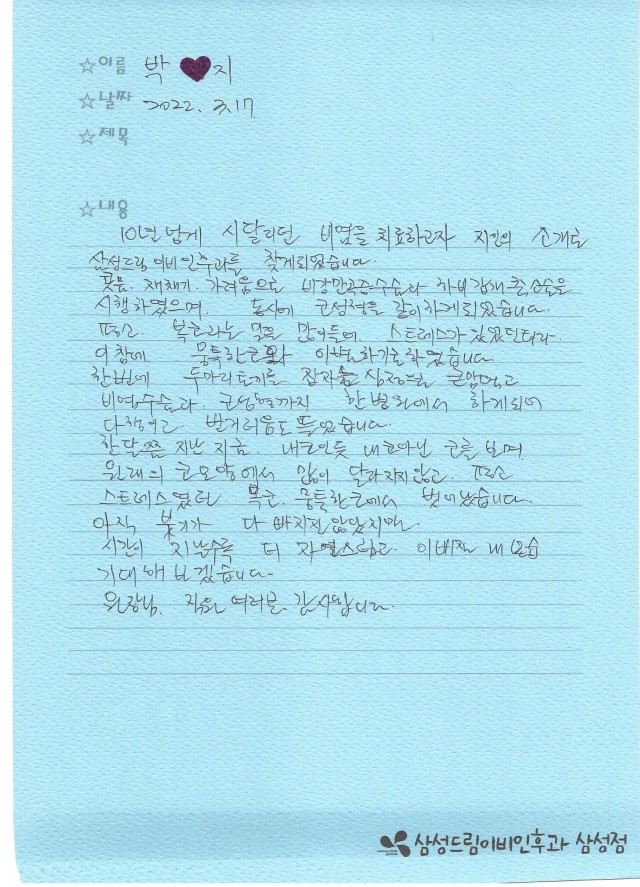 ☆이름 박 ♥지
☆날짜 2022. 3.17
☆제목
☆내용
10년 넘게 시달리던 비염을 치료하고자 지인의 소개로
삼성드림이비인후과를 찾게되었습니다.
콧물. 재채기. 가려움으로 비강만곡증수술과 하비갑개축소술을
시행하였으며. 동시에 코성형을 같이하게되었습니다.
평소. 복코라는 말을 많이들어 스트레스가 있었던터라
이참에 뭉툭한코와 이별하기로하였습니다
한번에 두마리토끼를 잡자는 심정으로 큰맘먹고
비염수술과. 코성형까지 한병원에서 하게되어
다행이고 번거러움도 덜었습니다.
한달쯤 지난 지금. 내코인듯 내코아닌 코를 보며
원래의 코모양에서 많이 달라지지않고. 평소
스트레스였던 복코. 뭉툭한코에서 벗어났습니다.
아직 붓기가 다 빠지진 않았지만.
시간이 지날수록 더 자연스럽고 이뻐질 내모습
기대해 보겠습니다.
원장님. 직원 여러분. 감사합니다.
삼성드림이비인후과 삼성점